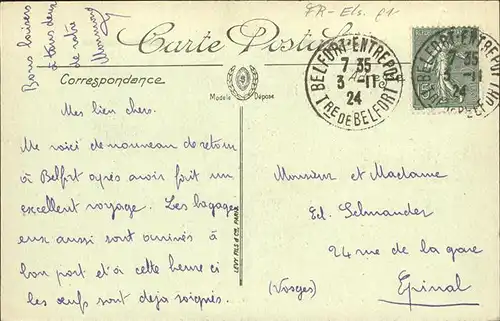 Bons baisers
à tous deux
de votre
FR-Els. £1-
Carte Postale
Correspondance
Modèle Déposé
BELFORT-ENTREPOT
7 35
3 - 11
24
TRE DE BELFORT
BELFORT-ENTREPOT
7 35
3 - 11
24
TRE DE BELFORT
Mes bien chers.
Me voici de nouveau de retour
à Belfort après avoir fait un
excellent voyage. Les bagages
eux aussi sont arrivés à
bon port et à cette heure ci
les œufs sont deja soignés.
LEVY FILS & Cie, PARIS
Monsieur et Madame
Ed. Selmander
24 rue de la gare
(Vosges) Epinal